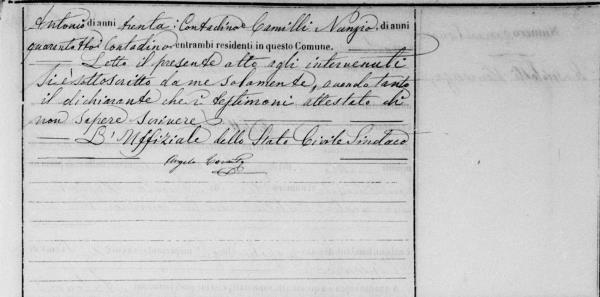 Antonio di anni trenta: Contadino e Camilli Nunzio, di anni
quarantotto: Contadino entrambi residenti in questo Comune.
Letto il presente atto agli intervenuti
si è sottoscritto da me solamente, avendo tanto
il dichiarante che i testimoni attestato di
non sapere scrivere
L'Uffiziale dello Stato Civile Sindaco
Angelo